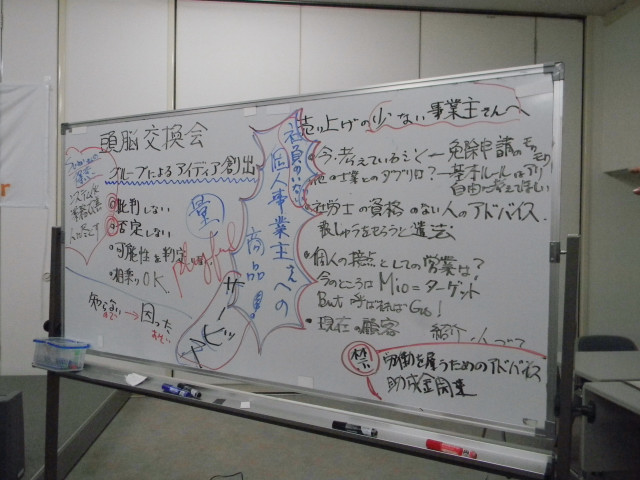 頭脳交換会
グループによるアイディア創出
批判しない
否定しない
・可能性を判定
・相乗りOK.
量
playful
知らない→困った
社員のいない
個人事業主さんへの
商品
サービス
売り上げの少ない事業主さんへ
・今、考えているのは←免除申請の
他の士業とのダブリは?→基本ルールはアリ
自由に考えてほしい
・社労士の資格のない人のアドバイス.
報しゅうをもらうと違法
・個人の接点としての営業は?
今のところはMio=ターゲット
But 呼ばれればGo!
・現在の顧客
紹介.
禁
労働を雇うためのアドバイス
助成金関連